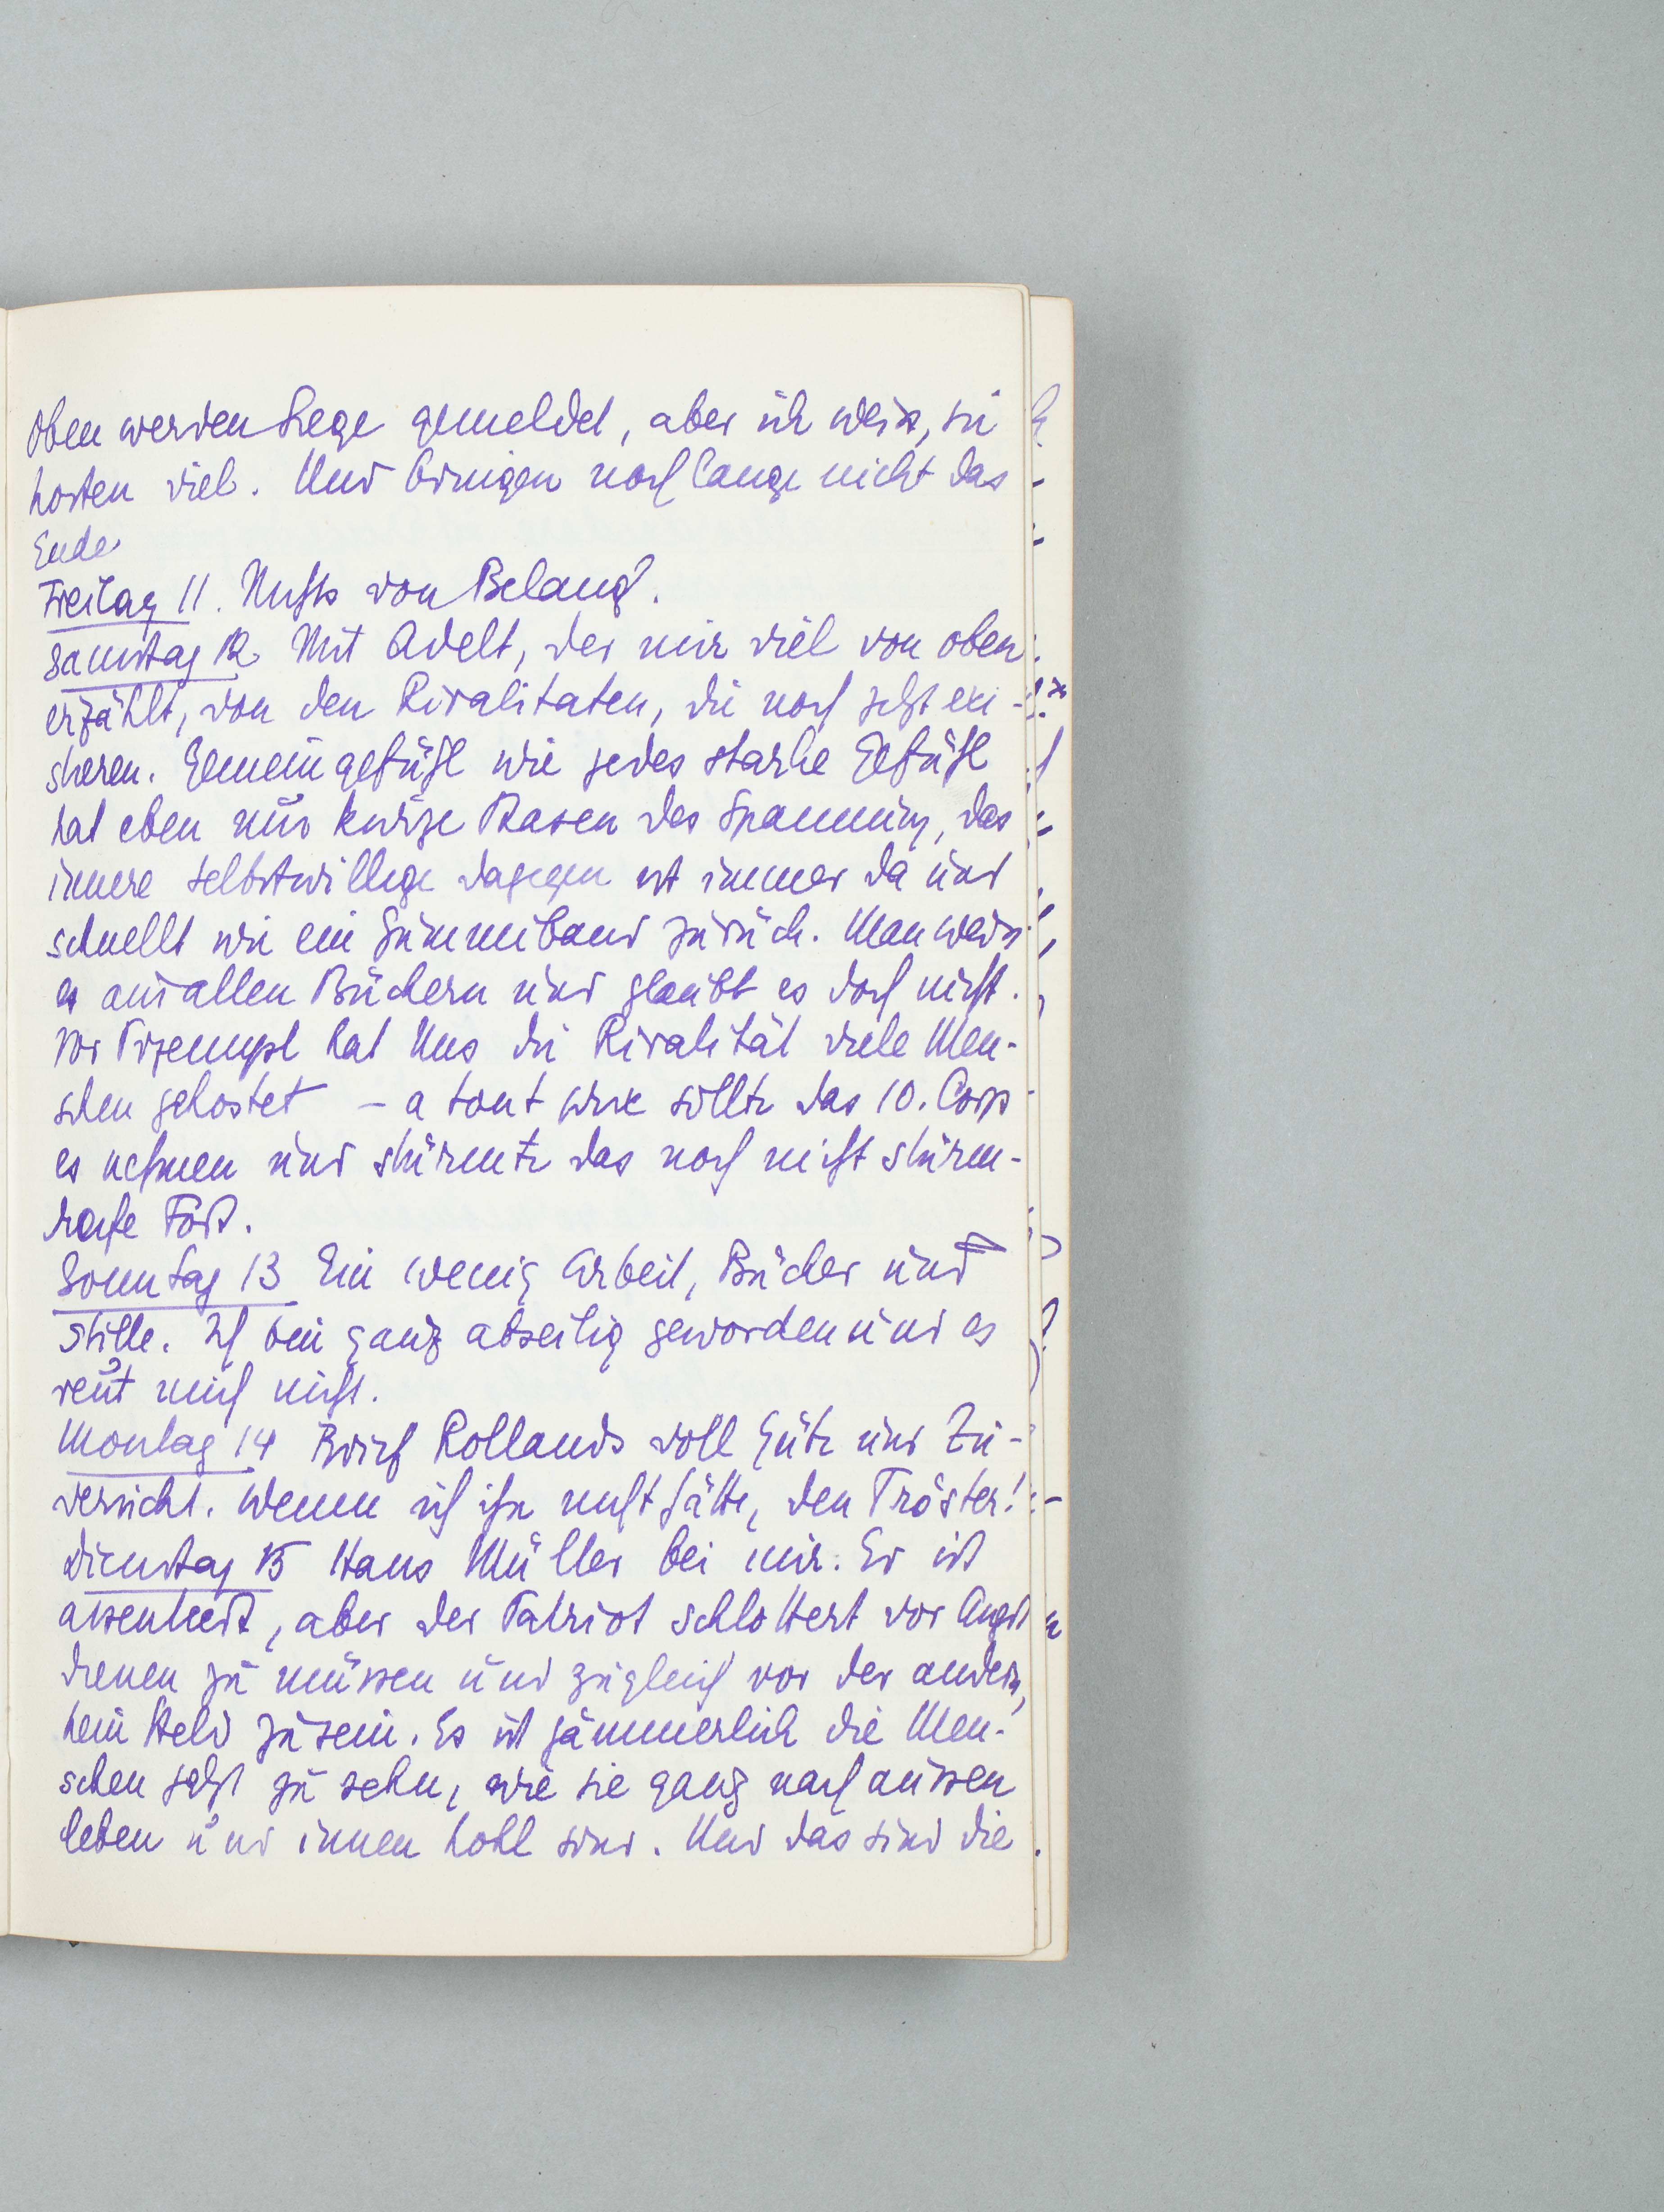 Oben werden Siege gemeldet, aber ich weiss, sie
kosten viel. Und bringen noch lange nicht das
Ende
Freitag 11. Nichts von Belang.
Samstag 12 Mit Adelt, der mir viel von oben
erzählt, von den Rivalitaten, die noch jetzt exi-
stieren. Gemeingefühl wie jedes starke Gefühl
hat eben nur kurze Phasen der Spannung, das
innere selbstwillige dagegen ist immer da und
schnellt wie ein Gummiband zurück. Man weiss
es aus allen Büchern und glaubt es doch nicht.
Vor Przemysl hat Uns die Rivalität viele Men-
schen gekostet – a tout prix sollte das 10. Corps
es nehmen und stürmte das noch nicht sturm-
reife Fort.
Sonntag 13 Ein wenig Arbeit, Bücher und
Stille. Ich bin ganz abseitig geworden und es
reut mich nicht.
Montag 14 Brief Rollands voll Güte und Zu-
versicht. Wenn ich ihn nicht hätte, den Tröster!
Dienstag 15 Hans Müller bei mir. Er ist
assentiert, aber der Patriot schlottert vor Angst
dienen zu müssen und zugleich vor der andern,
kein Held zu sein. Es ist jämmerlich die Men-
schen jetzt zu sehn, wie sie ganz nach aussen
leben und innen hohl sind. Und das sind die